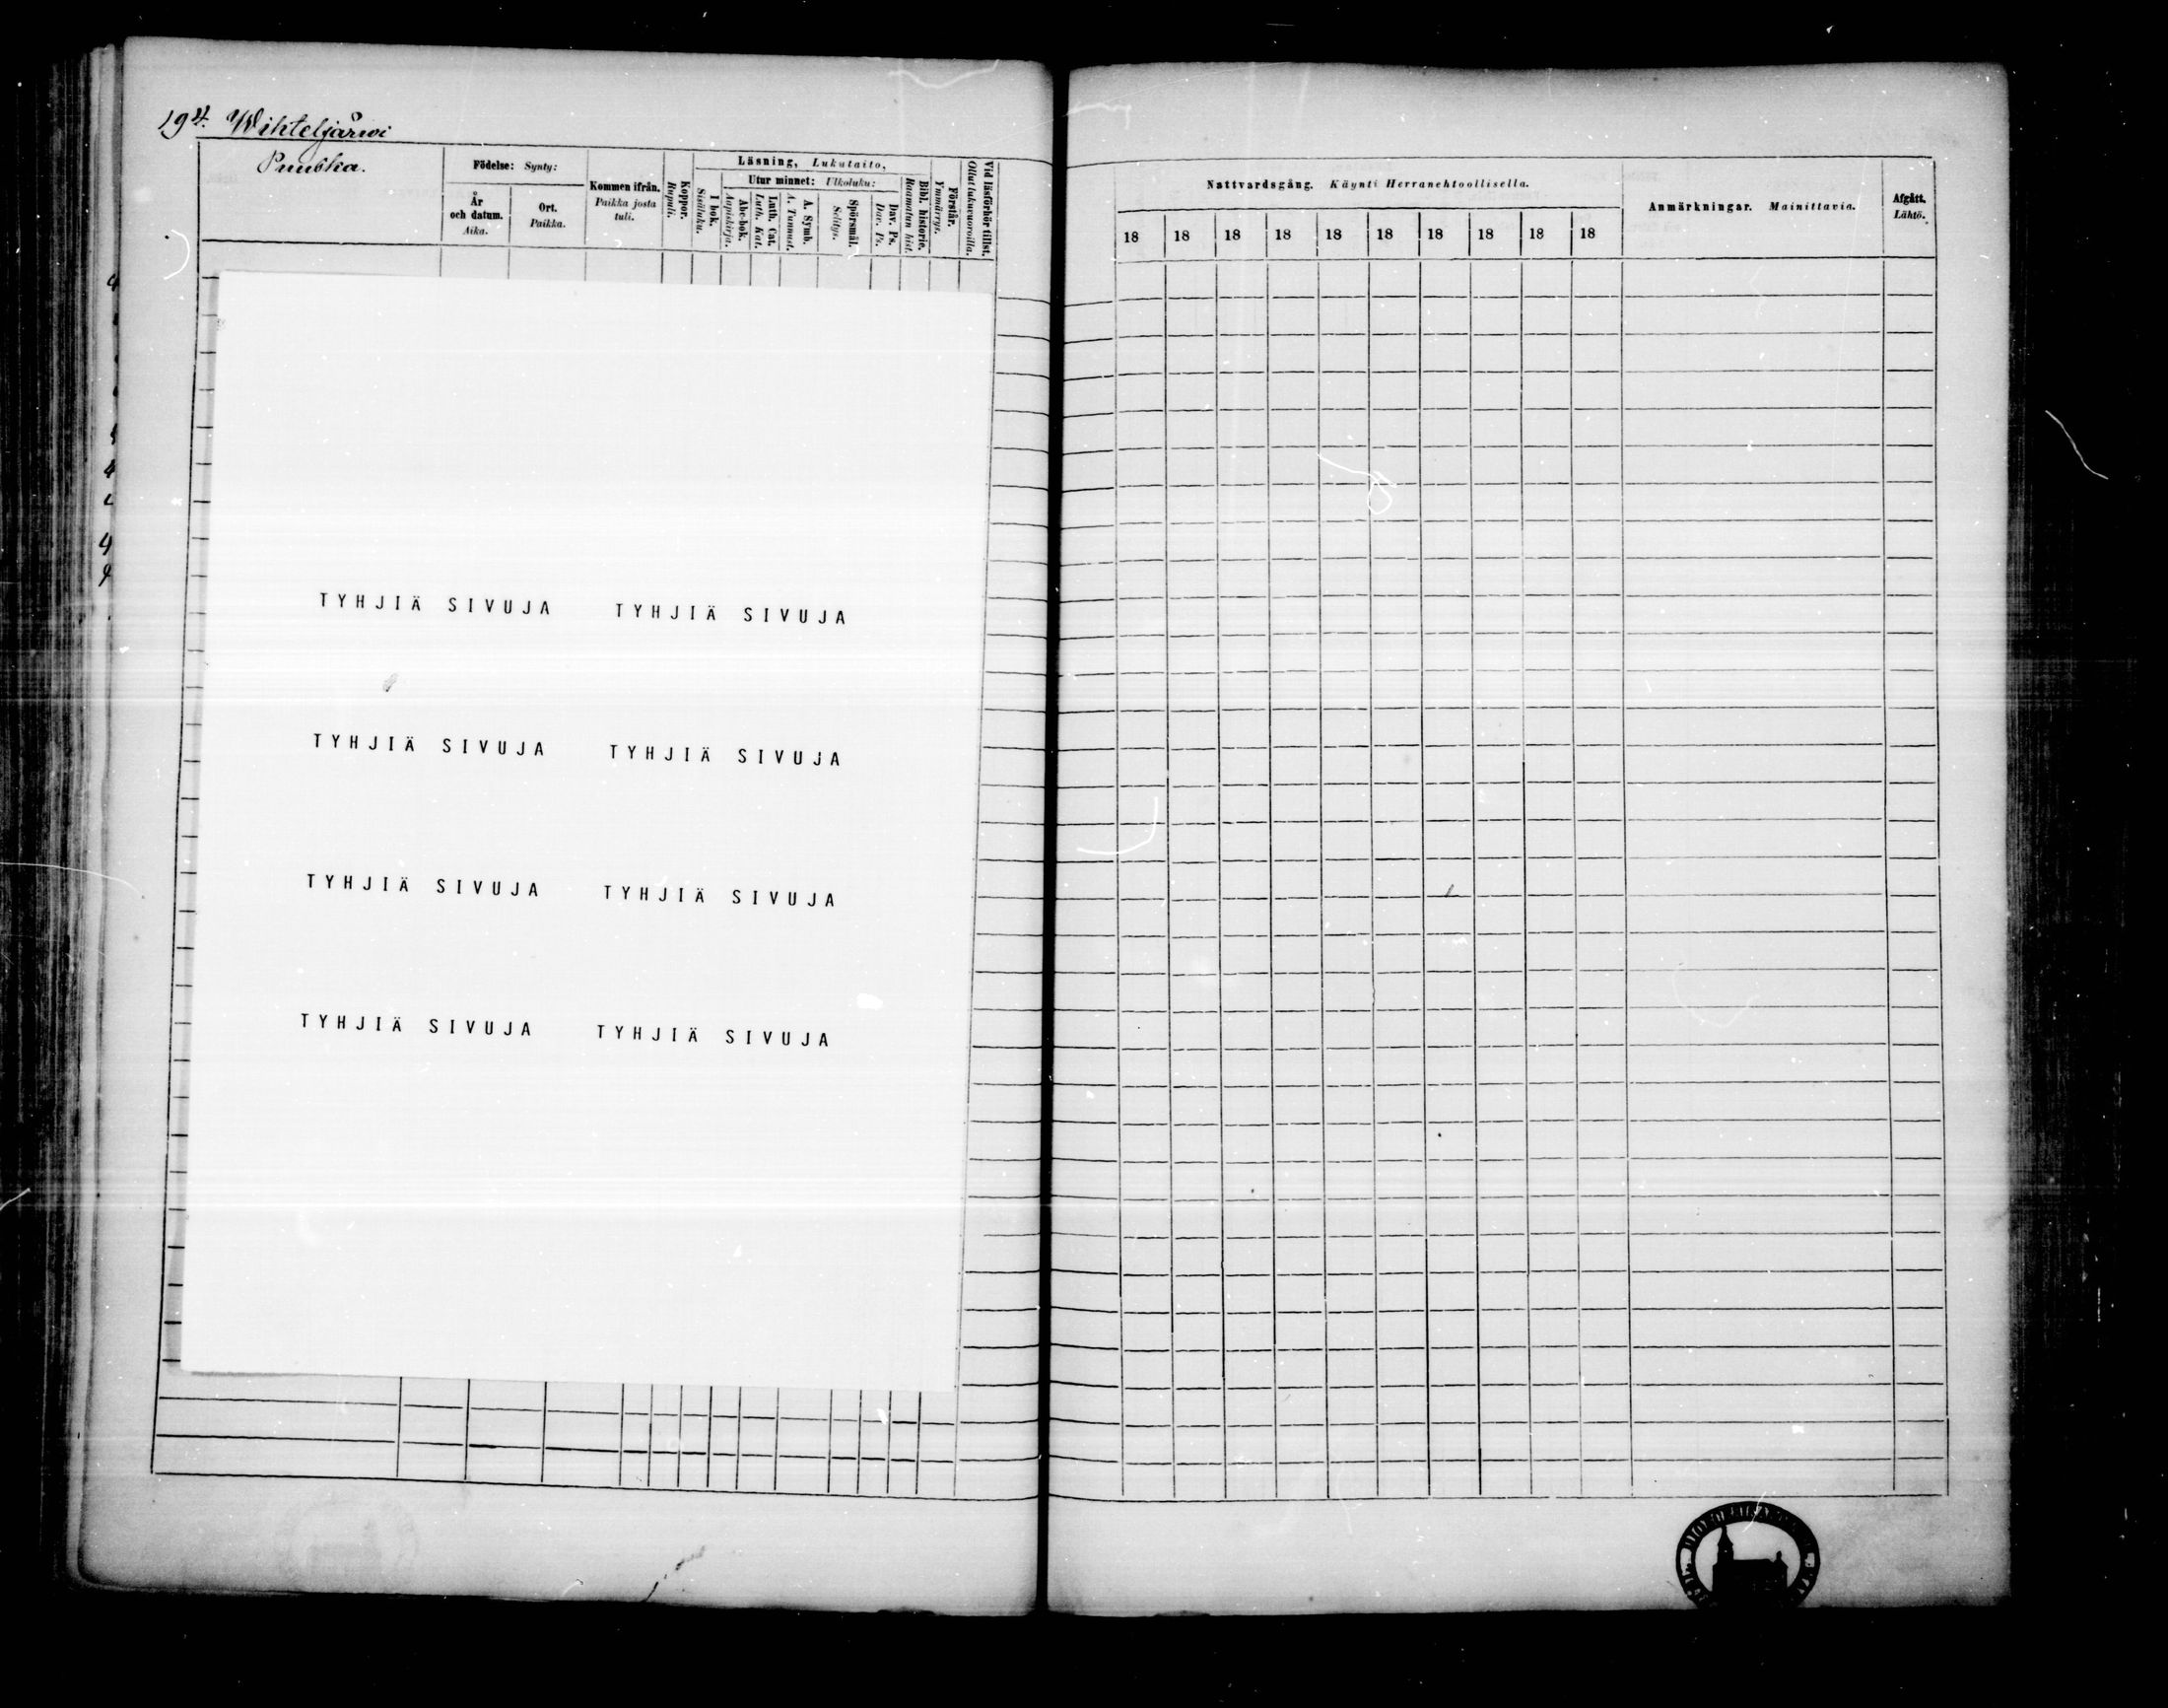 194. Wihteljärwi
Puukka.
Födelse: Synty:
År och datum. Aika.
Ort. Paikka.
Kommen ifrån. Paikka josta tuli.
Koppor. Rupuli.
Läsning, Lukutaito,
I bok. Sisäluku.
Utur minnet: Ulkoluku:
Abc-bok. Aapiskirja.
Luth. Cat. Luth. Kat.
A. Symb. A. Tunnust.
Spörsmål. Selitys.
Dav. Ps. Dav. Ps.
Bibl. historie. Raamatun hist.
Förstår. Ymmärrys.
Vid läsförhör tillst. Ollut lukuwuoroilla.
TYHJIÄ SIVUJA TYHJIÄ SIVUJA
TYHJIÄ SIVUJA TYHJIÄ SIVUJA
TYHJIÄ SIVUJA TYHJIÄ SIVUJA
TYHJIÄ SIVUJA TYHJIÄ SIVUJA
Nattvardsgång. Käynti Herranehtoollisella.
18 18 18 18 18 18 18 18 18 18
Anmärkningar. Mainittavia.
Afgått. Lähtö.